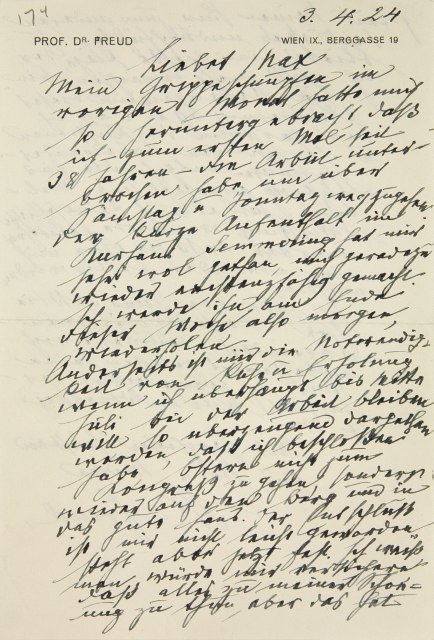 174
3. 4. 24
PROF. DR. FREUD
WIEN IX., BERGGASSE 19
Lieber Max
Mein Grippeschnupfen im
vorigen Monat hatte mich
so heruntergebracht, daß
ich – zum ersten Mal seit
38 Jahren – die Arbeit unter-
brochen habe um über
Samstag u Sonntag wegzugehen
Der kurze Aufenthalt im
Kurhaus Semmering hat mir
sehr wol gethan, mich geradezu
wieder existenzfähig gemacht.
Ich werde ihn am Ende
dieser Woche also morgen
wiederholen
Anderseits ist mir die Notwendig-
keit von Ruhe u Erholung
wenn ich überhaupt bis Mitte
Juli bei der Arbeit bleiben
will so überzeugend dargethan
worden daß ich beschlossen
habe Ostern nicht zum
Kongreß zu gehen, sondern
wieder auf den Berg und in
das gute Haus. Der Entschluß
ist mir nicht leicht geworden
steht aber jetzt fest. Ich weiß
man würde mir versichern
daß alles zu meiner Schon-
ung zu thun, aber das hat